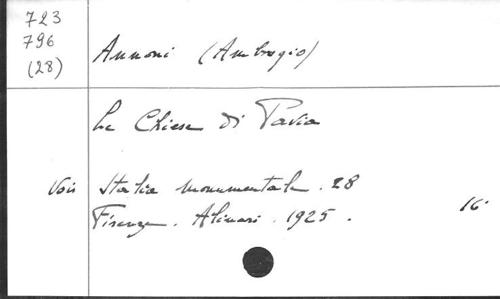 723
796
(28)
Annoni (Ambrogio)
Le Chiese di Pavia
Vois Italia monumentale. 28
Firenze. Alinari. 1925.
16°